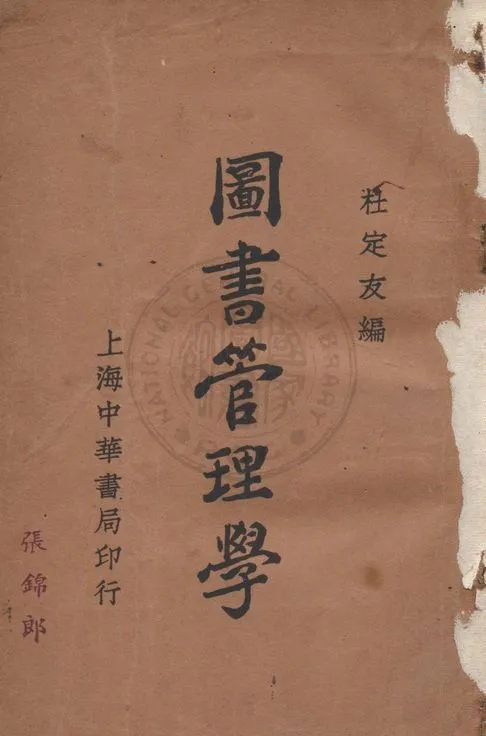 杜定友編
圖書管理學
上海中華書局印行
張錦郎
NATIONAL CENTRAL LIBRARY